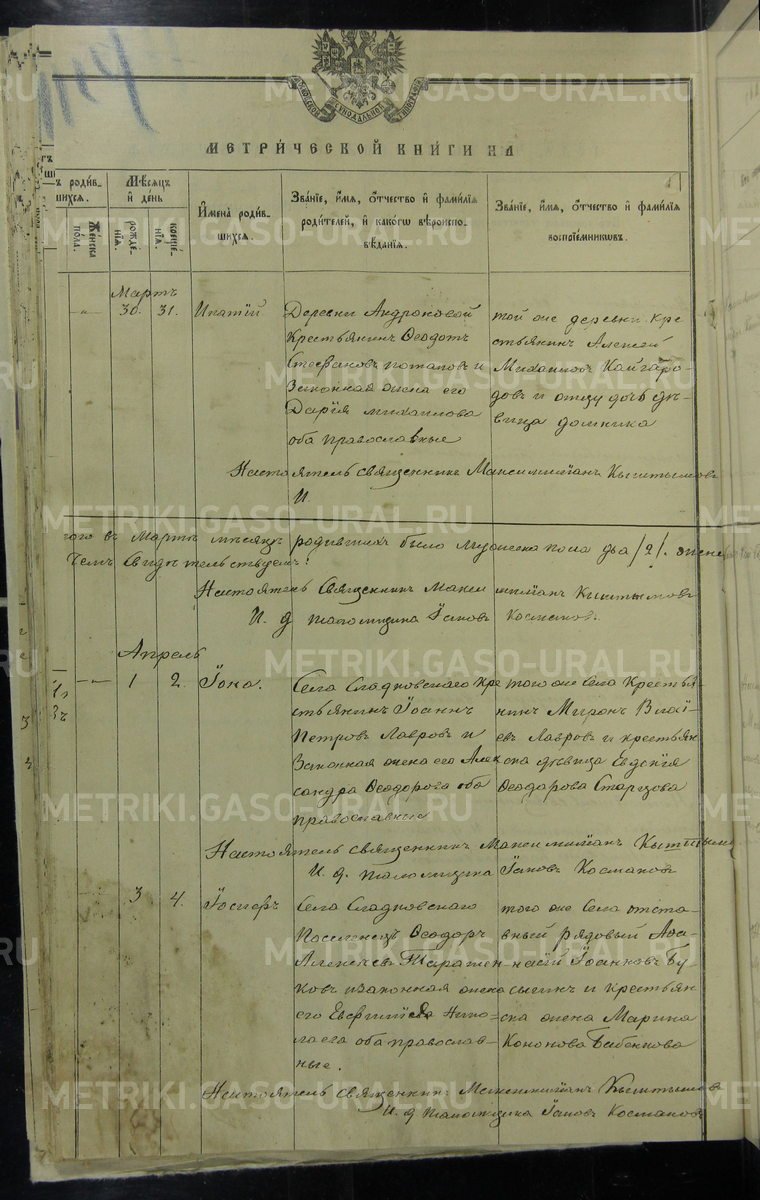 МЕТРИ́ЧЕСКОЙ КНИ́ГИ НА
ъ роди́в-
шихся.
Же́нска
по́ла.
Мѣ́сяцъ
и҆ день
рожде-
нїѧ.
креще́-
нїѧ.
И҆мена̀ роди́в-
шихся.
Зва́нїе, и҆́мѧ, ѻ҆́тчество и҆ фами́лїѧ
роди́телей, и҆ како́гѡ вѣ̀роиспо-
вѣ́данїѧ.
Зва́нїе, и҆́мѧ, ѻ҆́тчество и҆ фами́лїѧ
воспрїе́мникѡвъ.
Мартъ
30. 31. Ипатій
Деревни Андроновой
крестьянинъ Ѳеодотъ
Стефановъ Потаповъ и
Законная жена его
Дарія Михаилова
оба православные
той же деревни кре
стьянинъ Алексѣй
Михаиловъ Кайгаро-
довъ и отцу дочь дѣ-
вица Домника
Настоятель Священникъ Максимиліанъ Кыштымовъ
И.
того въ Мартѣ мѣсяцѣ родившихъ было Мужеска пола два /2/. жене
чемъ свидѣтельствуемъ:
Настоятель Священникъ Максимиліанъ Кыштымовъ
И. д псаломщика Іаковъ Космаковъ.
Апрель
1 2. Іона.
Села Сладковскаго кре
стьянинъ Іоаннъ
Петровъ Лавровъ и
Законная жена его Алек
сандра Ѳеодорова оба
православные
того же села Крестья-
нинъ Миронъ
евъ Лавровъ и крестьян
ска дѣвица Евдокія
Ѳеодорова Старцова
Настоятель Священникъ Максимиліанъ Кыштымо
И. д. псаломщика Іаковъ Космаковъ
3 4. Іосифъ
Села Сладковскаго
Поселенецъ Ѳеодоръ
Алексѣевъ Таражен
ковъ и законная жена
его Евфимія Нико=
лаева оба православ-
ные.
того же села отста-
вный рядовый Аѳа-
насій Іоанновъ Бу
сыгинъ и крестьян
ска жена Марина
Кононова Бабенкова
Настоятель Священникъ Максимиліанъ Кыштымов
И. д псаломщика Іаковъ Космаковъ
METRIKI.GASO-URAL.RU